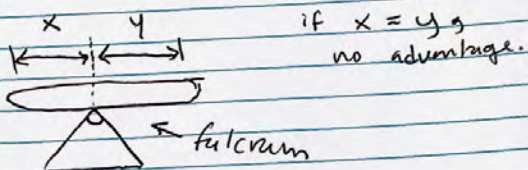 x y
if x = y,
no advantage.
fulcrum